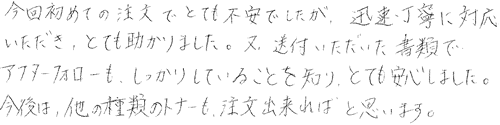 今回初めての注文でとても不安でしたが、迅速・丁寧に対応
いただき、とても助かりました。又、送付いただいた書類で
アフターフォローも、しっかりしていることを知り、とても安心しました。
今後は、他の種類のトナーも、注文出来ればと思います。